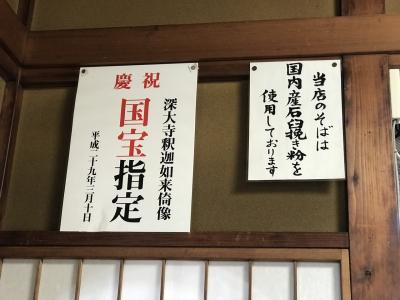 慶祝
深大寺釈迦如来倚像
国宝指定
平成二十九年三月十日
当店のそばは
国内産石臼挽き粉を
使用しております